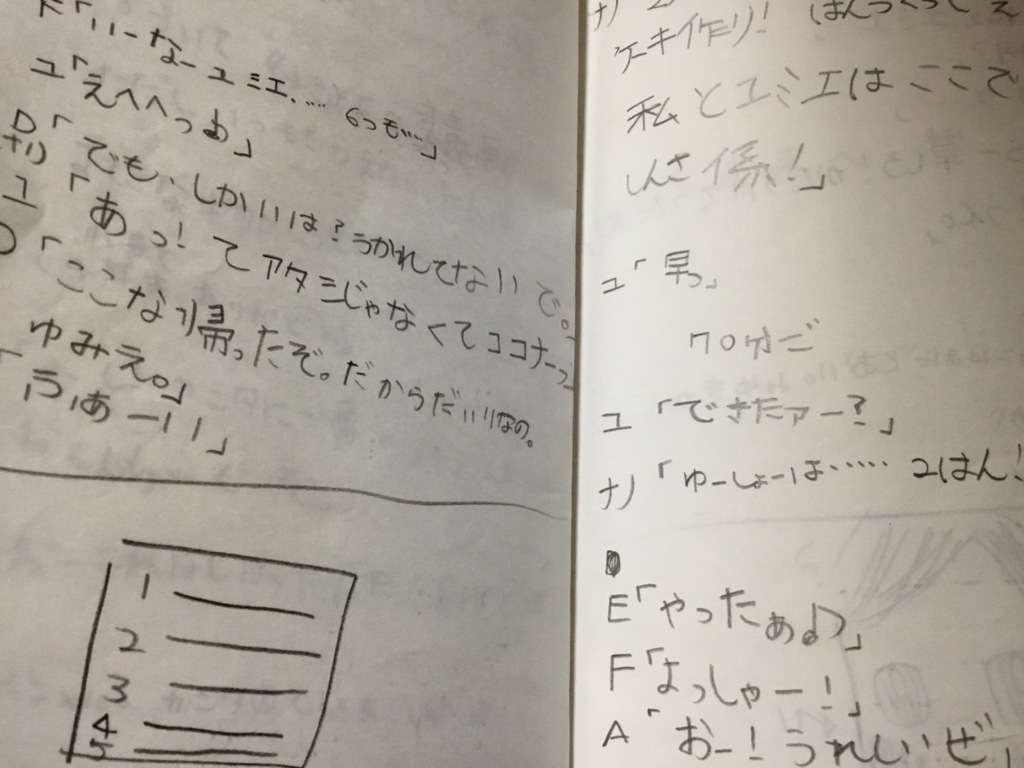 F「いーなーユミエ、…… 6つも…」
ユ「えへへっ」
D「でも、しかいは？うかれてないで。
ナリ
ユ「あっ！てアタシじゃなくてココナーっ」
D「ここなﾘ帰ったぞ。だからだいりなの。
ゆみえ。」
「うぁーい」
1
2
3
4
5
ナﾉ
ケーキ作り！
私とユミエはここで
しんさ係！」
ユ「早っ」
70分ご
ユ「できたァー？」
ナﾉ「ゆーしょーは…… 2はん！
E「やったぁ♪」
F「よっしゃー！」
A「おー！うれしいぜ」